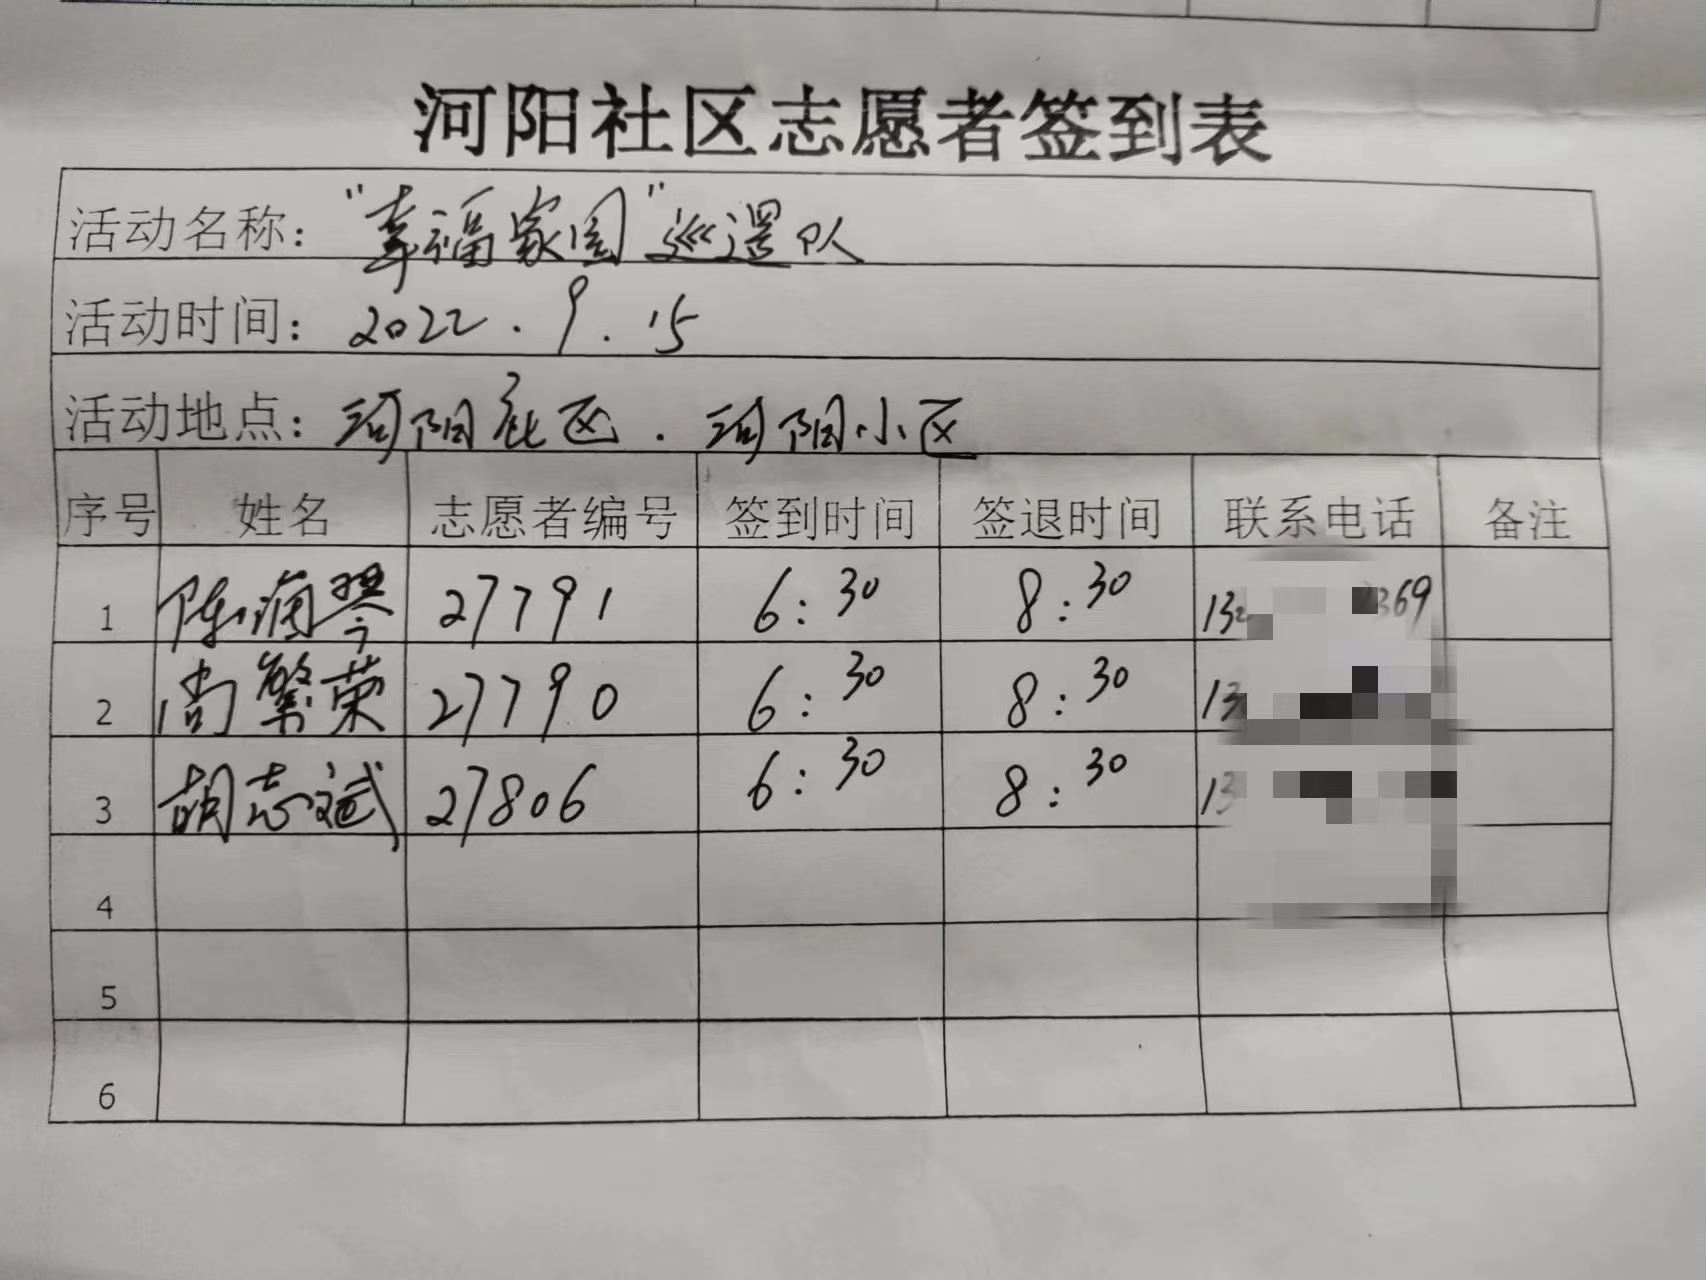 河阳社区志愿者签到表
活动名称："幸福家园"巡逻队
活动时间：2022.9.15
活动地点：河阳社区.河阳小区
序号 姓名 志愿者编号 签到时间 签退时间 联系电话 备注
1 陈 琴 27791 6:30 8:30 13 369
2 尚繁荣 27790 6:30 8:30 13
3 胡志斌 27806 6:30 8:30 13
4
5
6